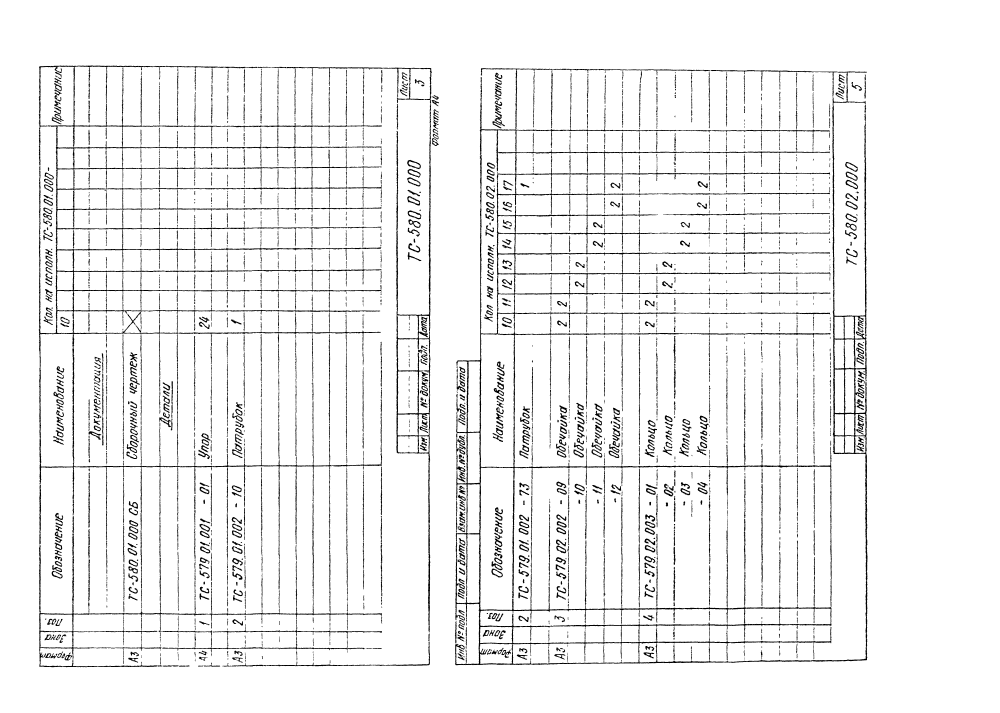 Формат Зона Поз. Обозначение Наименование Кол. на исполн. ТС-580.01.000- Примечание
10
Документация
А3 ТС-580.01.000 СБ Сборочный чертеж
Детали
А4 1 ТС-579.01.001 - 01 Упор 24
А3 2 ТС-579.01.002 - 10 Патрубок 1
Изм Лист № докум. Подп. Дата
ТС-580.01.000
Лист
3
Формат А4
Инв. № подл Подп. и дата Взам.инв.№ Инв.№ дубл. Подп. и дата
Формат Зона Поз. Обозначение Наименование Кол на исполн. ТС-580.02.000 Примечание
10 11 12 13 14 15 16 17
А3 2 ТС-579.01.002 - 73 Патрубок 1
А3 3 ТС-579.02.002 - 09 Обечайка 2 2
- 10 Обечайка 2 2
- 11 Обечайка 2 2
- 12 Обечайка 2 2
А3 4 ТС-579.02.003 - 01 Кольцо 2 2
- 02 Кольцо 2 2
- 03 Кольцо 2 2
- 04 Кольцо 2 2
Изм Лист № докум. Подп. Дата
ТС-580.02.000
Лист
5